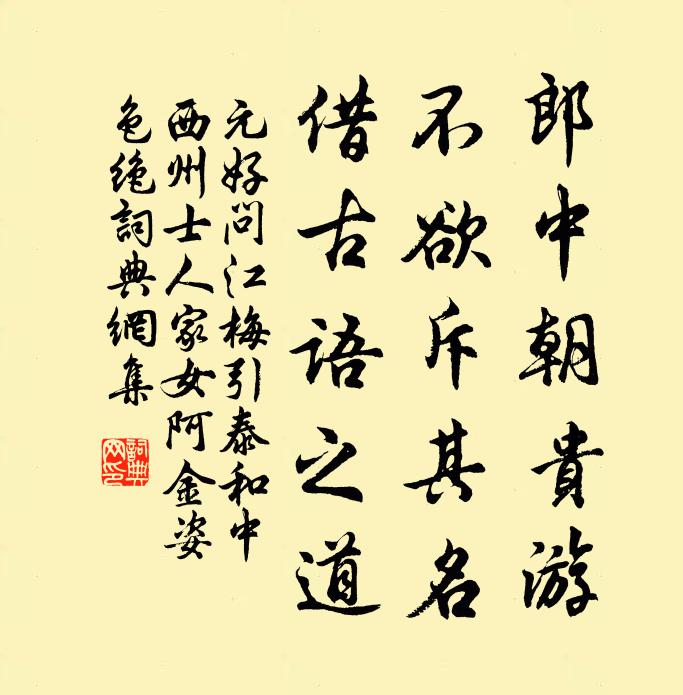 郎中朝貴游
不欲斥其名
借古語之道
元好問江梅引泰和中
西州士人家女阿金姿
色絶詞典網集
詞典網印